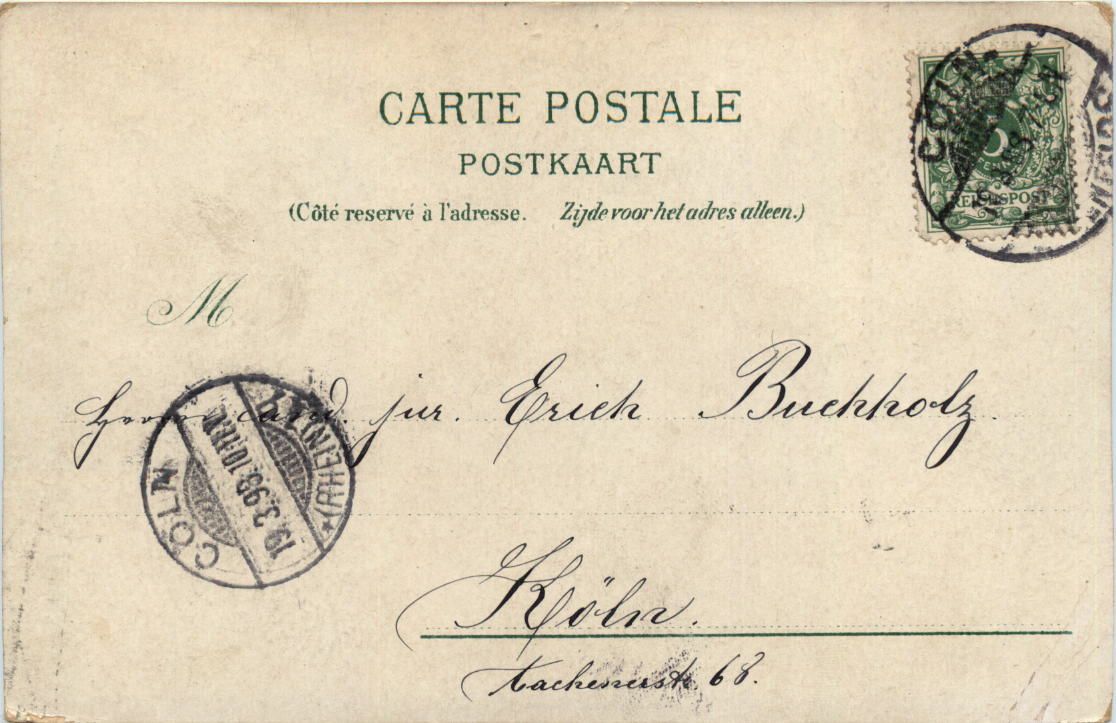 CARTE POSTALE
POSTKAART
(Côté reservé à l'adresse. Zijde voor het adres alleen.)
CÖLN-
5
REICHSPOST
M
Herrn cand. jur. Erich Buchholz.
CÖLN
19.3.98. 10-11V.
(RHEIN)
Köln.
Aachenerstr. 68.